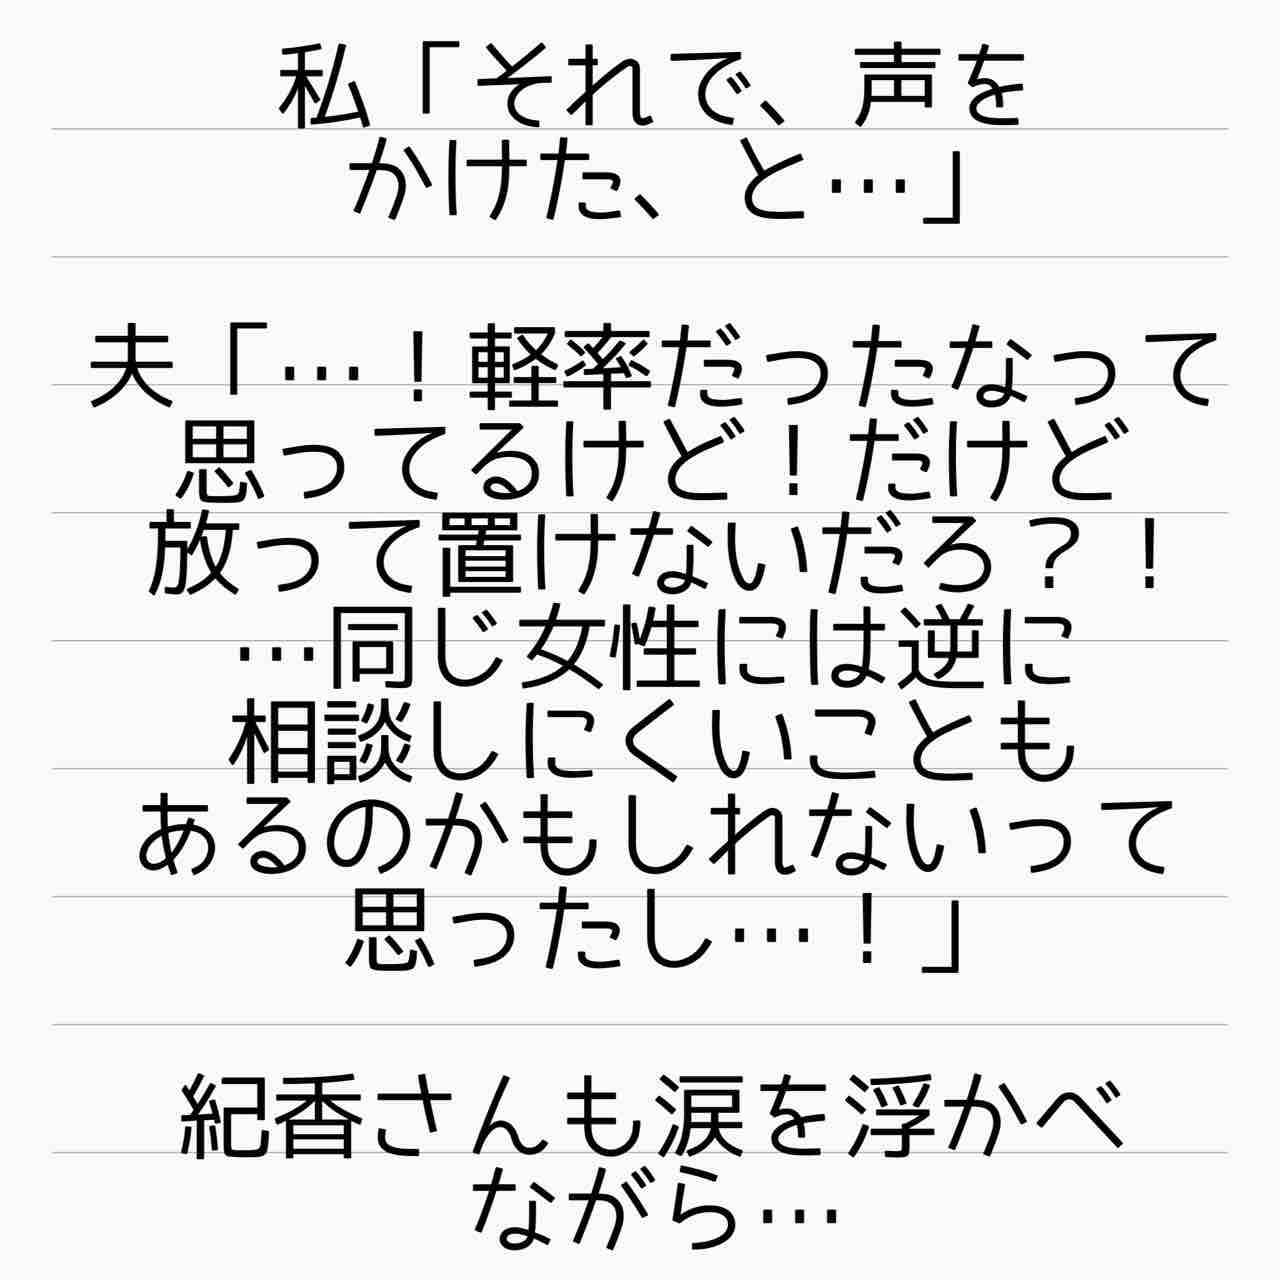 私「それで、声を
かけた、と…」
夫「…！軽率だったなって
思ってるけど！だけど
放って置けないだろ？！
…同じ女性には逆に
相談しにくいことも
あるのかもしれないって
思ったし…！」
紀香さんも涙を浮かべ
ながら…